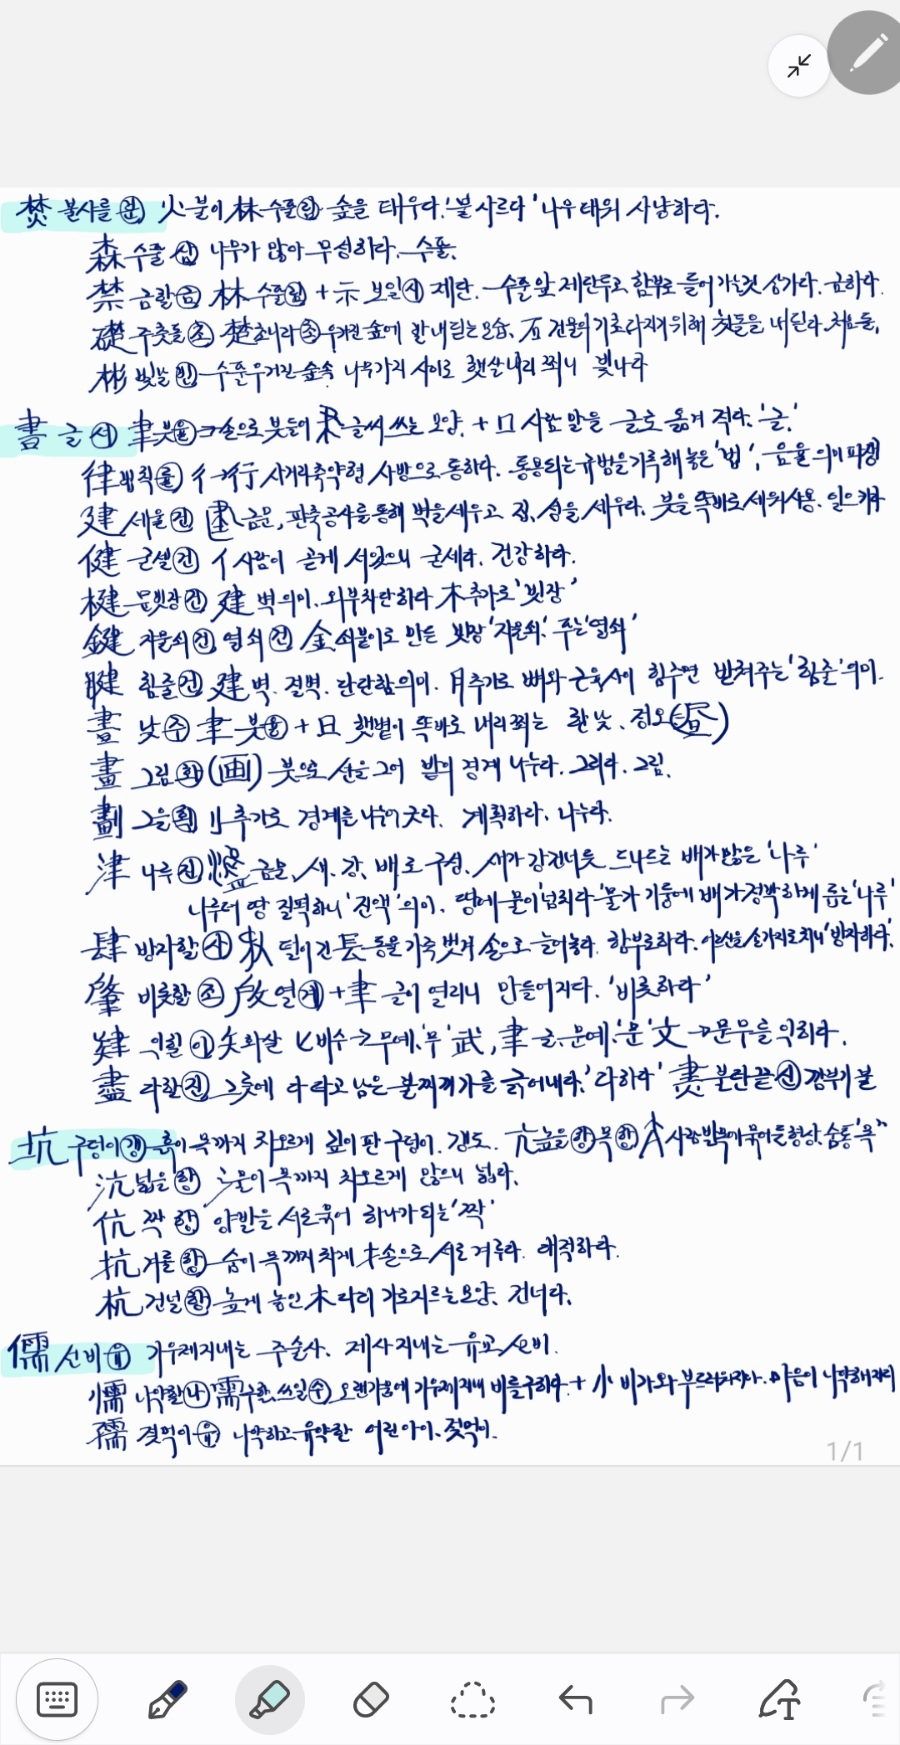 焚 불사를 분 火 불이 林 수풀림 숲을 태우다. '불사르다' 나우 태워 사냥하다.
森 수풀 삼 나무가 많아 무성하다. 수풀.
禁 금할 금 林 수풀림 + 示 보일시 제단. 수풀 앞 제단두고 함부로 들어가는것 삼가다. 금하다.
礎 주춧돌 초 楚 초나라 초 우거진 숲에 발 내딛는 모습, 石 건물의 기초 다지기 위해 첫돌을 내딛다. 처음돌.
彬 빛날 빈 수풀 우거진 숲속 나무가지 사이로 햇살 내리 쬐니 빛나다
書 글 서 聿 붓율 손으로 붓들어 글씨 쓰는 모양. + 口 사람 말을 글로 옮겨 적다. '글.'
律 법칙 률 彳→行 사거리 축약형 사방으로 통하다. 통용되는 규범을 기록해 놓은 '법', 음율 의미 파생
建 세울 건 금문, 판축공사를 통해 벽을 세우고 집, 성을 세우다. 붓을 똑바로 세워 사용. 일으키다
健 굳셀 건 亻사람이 곧게 서있으니 굳세다. 건강하다.
楗 문빗장 건 建 벽 의미. 외부차단하다 木 추가로 '빗장'
鍵 자물쇠 건 열쇠 건 金 쇠붙이로 만든 빗장 '자물쇠.' 푸는 '열쇠'
腱 힘줄 건 建 벽. 절벽. 단단함 의미. 月 추가로 뼈와 근육사이 힘주면 받쳐주는 '힘줄' 의미.
晝 낮 주 聿 붓율 + 日 햇볕이 똑바로 내리쬐는 환한 낮、정오 (昼)
畫 그림 화 (画) 붓으로 선을 그어 밭의 경계 나누다. 그리다. 그림.
劃 그을 획 刂 추가로 경계를 나누어 긋다. 계획하다. 나누다.
津 나루 진 금문, 새, 강, 배로 구성. 새가 강 건너듯 드나드는 배가 많은 '나루'
나루터 땅 질퍽하니 '진액' 의미. 땅에 물이 넘치다 물가 기둥에 배가 정박하게 하는 '나루'
肆 방자할 사 털이 긴 長 동물 가죽 벗겨 손으로 늘어놓다. 함부로하다.
肇 비롯할 조 啟 열 계 + 聿 글이 열리니 만들어지다. '비롯하다'
肄 익힐 이 矢 화살 匕 비수 → 무예. '무' 武, 聿 글. 문예. '문' 文 → 문무를 익히다.
盡 다할 진 그릇에 다 타고 남은 불찌꺼기를 긁어내다. '다하다' 불탄 끝 신 깜부기불
坑 구덩이 갱 흙이 목까지 차오르게 깊이 판 구덩이. 갱도. 亢 높을 항 목 항 사람 발목에 묶어둔 형상. 숨통 "목"
沆 넓을 항 氵물이 목까지 차오르게 많으니 넓다.
伉 짝 항 양발을 서로 묶어 하나가 되는 '짝'
抗 겨룰 항 숨이 목까지 차게 扌손으로 서로 겨루다. 대적하다.
杭 건널 항 높게 놓인 木 다리 가로지르는 모양. 건너다.
儒 선비 유 기우제 지내는 주술사. 제사 지내는 유교 선비.
懦 나약할 나 需 구할, 쓰일 수 오랜 가뭄에 기우제 지내 비를 구하다 + 忄 비가 와 부드러워지다. 마음이 나약해지다
孺 젖먹이 유 나약하고 유약한 어린아이. 젖먹이.
1/1